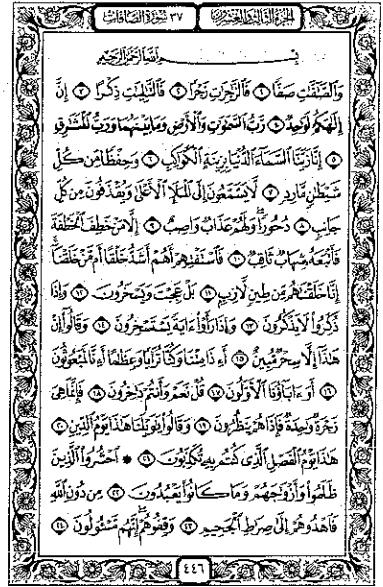 الجزء الثالث والعشرون
٣٧ سورة الصافات
بسم الله الرحمن الرحيم
وَالصَّٰٓفَّٰتِ صَفًّا ١ فَالزَّٰجِرَٰتِ زَجْرًا ٢ فَالتَّٰلِيَٰتِ ذِكْرًا ٣ إِنَّ
إِلَٰهَكُمْ لَوَٰحِدٌ ٤ رَّبُّ السَّمَٰوَٰتِ وَالْأَرْضِ وَمَا بَيْنَهُمَا وَرَبُّ الْمَشَٰرِقِ
٥ إِنَّا زَيَّنَّا السَّمَآءَ الدُّنْيَا بِزِينَةٍ الْكَوَاكِبِ ٦ وَحِفْظًا مِّن كُلِّ
شَيْطَٰنٍ مَّارِدٍ ٧ لَّا يَسَّمَّعُونَ إِلَى الْمَلَإِ الْأَعْلَىٰ وَيُقْذَفُونَ مِن كُلِّ
جَانِبٍ ٨ دُحُورًا وَلَهُمْ عَذَابٌ وَاصِبٌ ٩ إِلَّا مَنْ خَطِفَ الْخَطْفَةَ
فَأَتْبَعَهُ شِهَابٌ ثَاقِبٌ ١٠ فَاسْتَفْتِهِمْ أَهُمْ أَشَدُّ خَلْقًا أَم مَّنْ خَلَقْنَآ
إِنَّا خَلَقْنَٰهُم مِّن طِينٍ لَّازِبٍ ١١ بَلْ عَجِبْتَ وَيَسْخَرُونَ ١٢ وَإِذَا
ذُكِّرُوا لَا يَذْكُرُونَ ١٣ وَإِذَا رَأَوْا ءَايَةً يَسْتَسْخِرُونَ ١٤ وَقَالُوٓا إِنْ
هَٰذَآ إِلَّا سِحْرٌ مُّبِينٌ ١٥ أَءِذَا مِتْنَا وَكُنَّا تُرَابًا وَعِظَٰمًا أَءِنَّا لَمَبْعُوثُونَ
١٦ أَوَءَابَآؤُنَا الْأَوَّلُونَ ١٧ قُلْ نَعَمْ وَأَنتُمْ دَٰخِرُونَ ١٨ فَإِنَّمَا هِيَ
زَجْرَةٌ وَٰحِدَةٌ فَإِذَا هُمْ يَنظُرُونَ ١٩ وَقَالُوا يَٰوَيْلَنَا هَٰذَا يَوْمُ الدِّينِ ٢٠
هَٰذَا يَوْمُ الْفَصْلِ الَّذِي كُنتُم بِهِ تُكَذِّبُونَ ٢١ * احْشُرُوا الَّذِينَ
ظَلَمُوا وَأَزْوَٰجَهُمْ وَمَا كَانُوا يَعْبُدُونَ ٢٢ مِن دُونِ اللَّهِ
فَاهْدُوهُمْ إِلَىٰ صِرَٰطِ الْجَحِيمِ ٢٣ وَقِفُوهُمْ إِنَّهُم مَّسْـُٔولُونَ ٢٤
٤٤٦